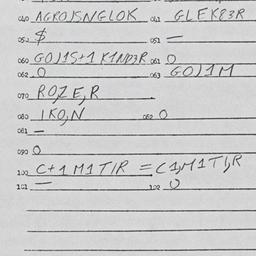 040 AGROJSNGLOK 041 GLEK83R
050 $ 051 —
060 GOJ1S+1 K1ND3R 061 O
062 O 063 GOJ1M
070 ROZE,R
080 IKO,N 082 O
081 —
090 O
100 C+1M1T/R = C1,M1T1,R
101 — 102 O